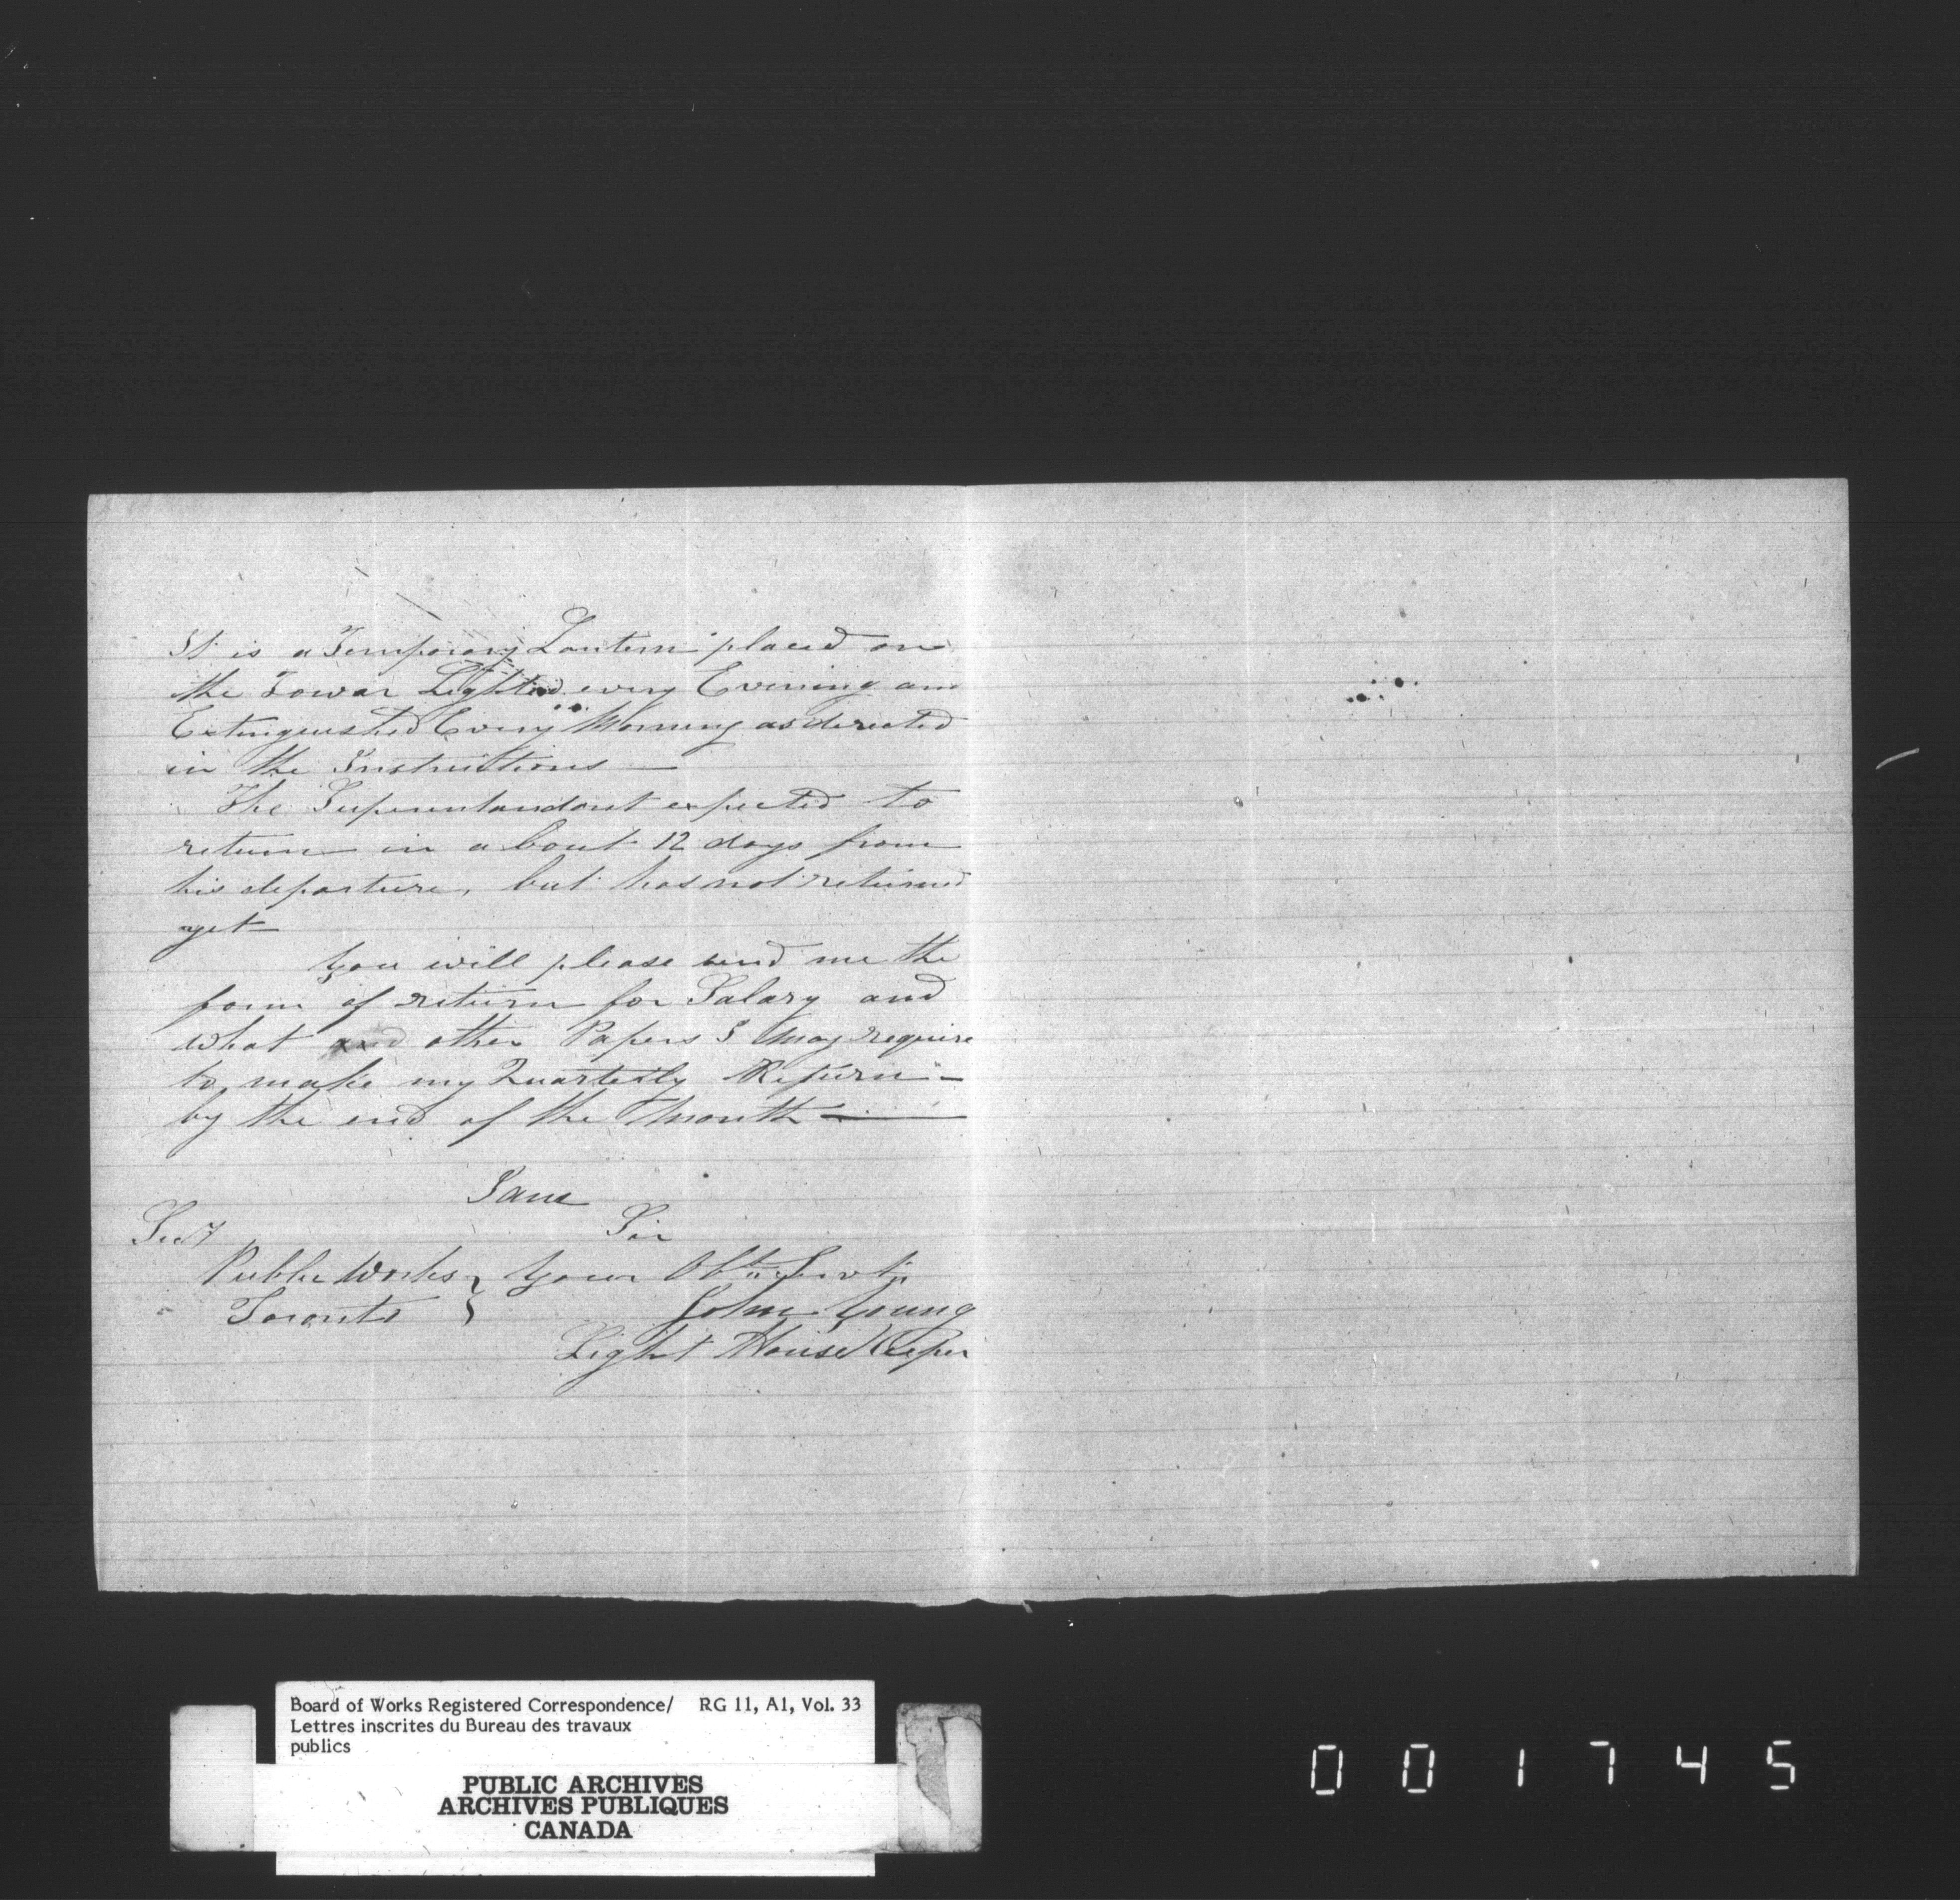 It is a Temporary Lantern placed on
the Towar Lighted every Evening and
Extinguished Every Morning as derected
in the Instructions —
The Superentandant expected to
return in a bout 12 days from
his departure, but has not returned
yet —
You will please send me the
form of return for Salary and
what and other Papers I May require
to make my Quarterly Return —
by the end of the Month —
I am
Sir
Secy
Public Works } Your Obt Servt
Toronto } John Young
Light House Keeper
Board of Works Registered Correspondence/ RG 11, A1, Vol. 33
Lettres inscrites du Bureau des travaux
publics
PUBLIC ARCHIVES
ARCHIVES PUBLIQUES
CANADA
001745